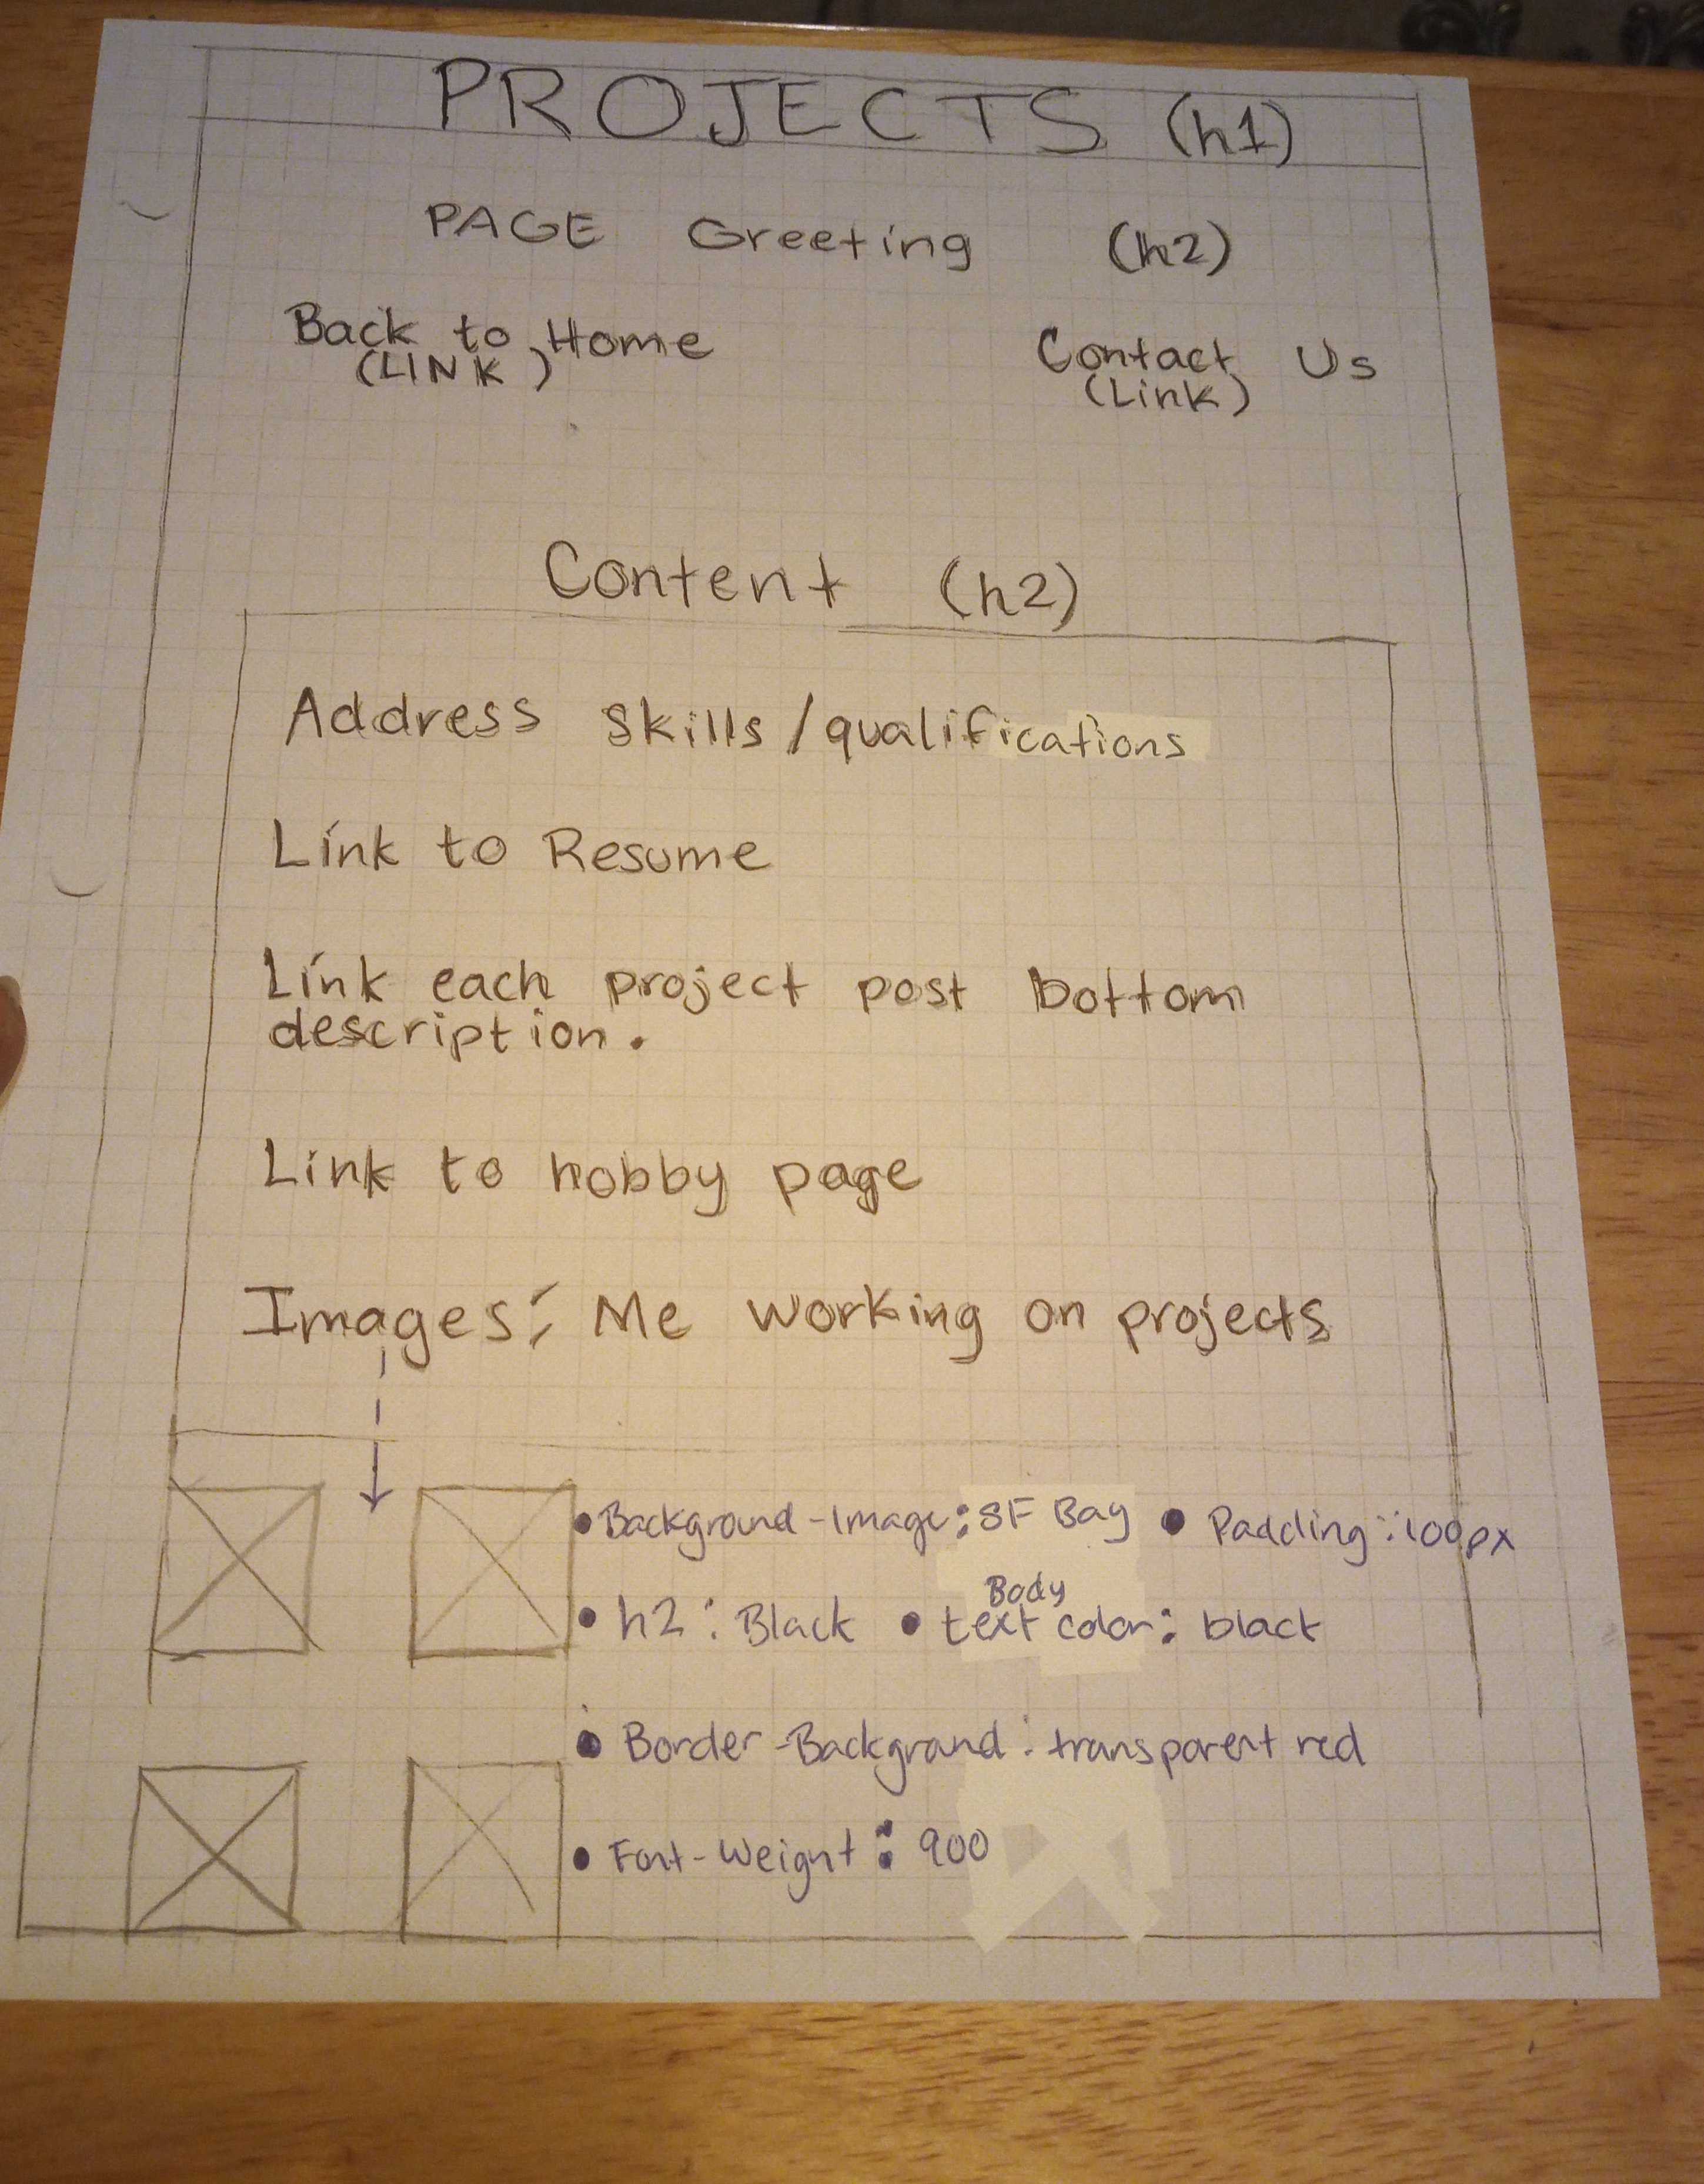 PROJECTS (h1)
PAGE Greeting (h2)
Back to Home
(LINK)
Contact Us
(Link)
Content (h2)
Address skills/qualifications
Link to Resume
Link each project post bottom
description.
Link to hobby page
Images: Me working on projects
• Background-Image: SF Bay • Padding: 100px
Body
• h2: Black • text color: black
• Border-Background: transparent red
• Font-Weight: 900